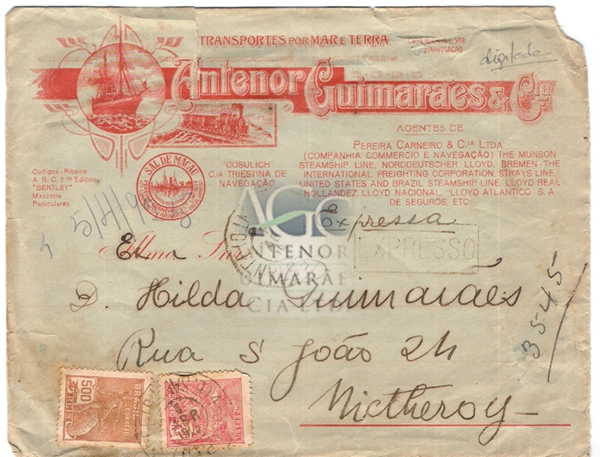 TRANSPORTES POR MAR E TERRA
digitado
Antenor Guimarães & Cia
AGENTES DE
PEREIRA CARNEIRO & CIA LTDA.
(COMPANHIA COMMERCIO E NAVEGAÇÃO) THE MUNSON
STEAMSHIP LINE, NORDDEUTSCHER LLOYD, BREMEN - THE
INTERNATIONAL FREIGHTING CORPORATION, STRAYS LINE,
UNITED STATES AND BRAZIL STEAMSHIP LINE, LLOYD REAL
HOLLANDEZ, LLOYD NACIONAL, LLOYD ATLANTICO S.A.
DE SEGUROS, ETC.
Codigos - Ribeiro
A. B. C. 5ª Edition
"BENTLEY"
Mascotte
Particulares
SAL DE MACAU
COSULICH
CIA TRIESTINA DE
NAVEGAÇÃO
AGC
ANTENOR
GUIMARÃE
CIA LTD
Expressa
EXPRESSO
Ex
D. Hilda Guimarães
Rua S João 24
Nictheroy
3545
500
REIS
BRASIL
CORREIO